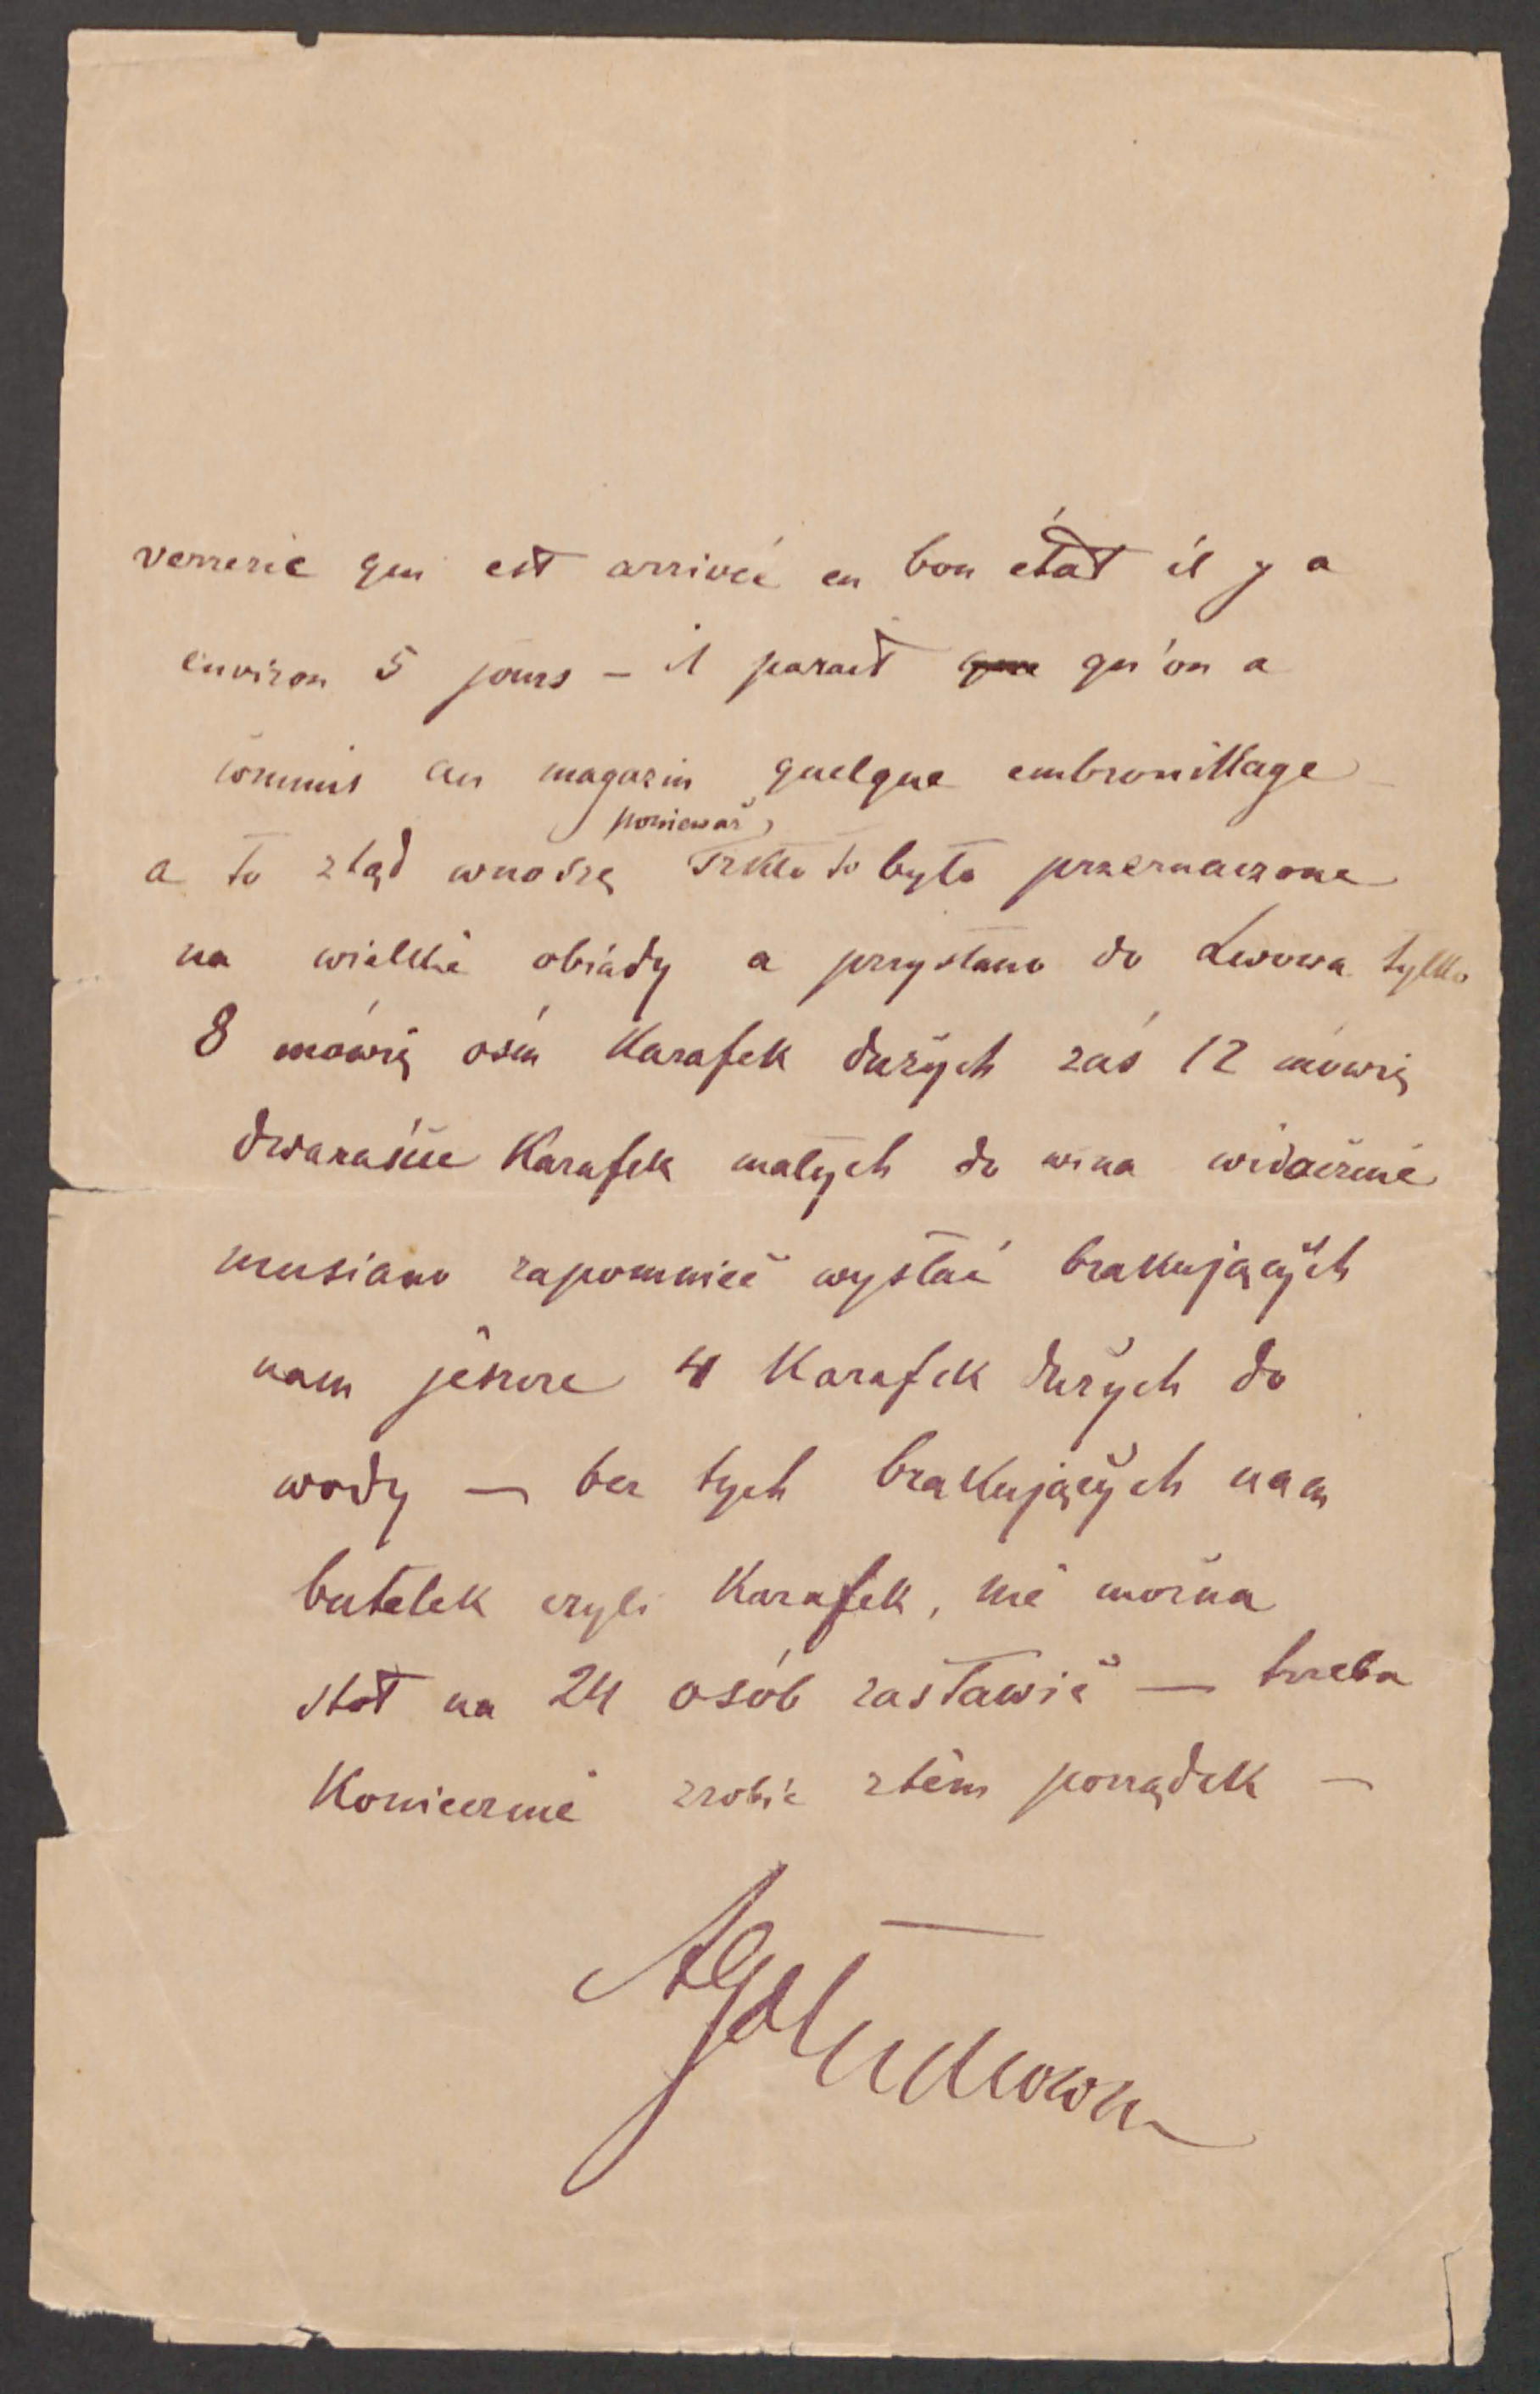 verrerie qui est arrivée en bon état il y a
environ 5 jours – il parait que qu'on a
commis au magazin quelque embrouillage
a to ztąd wnoszę ponieważ szkło to było przeznaczone
na wielkie obiady a przysłano do Lwowa tylko
8 mówię ośm Karafek dużych zaś 12 mówię
dwanaście Karafek małych do wina widocznie
musiano zapomnieć wysłać brakujących
nam jeszcze 4 Karafek dużych do
wody — bez tych brakujących nam
butelek czyli Karafek, nie można
stół na 24 osób zastawić — trzeba
Koniecznie zrobić ztém porządek —